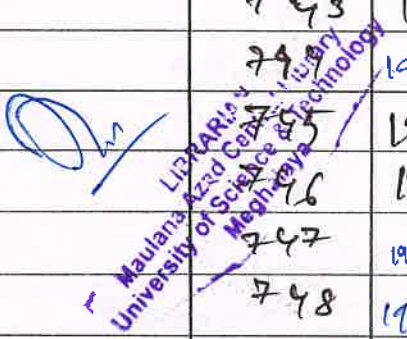 743
744
745
746
747
748
LIBRARIAN
Maulana Azad Central Library
University of Science & Technology
Meghalaya